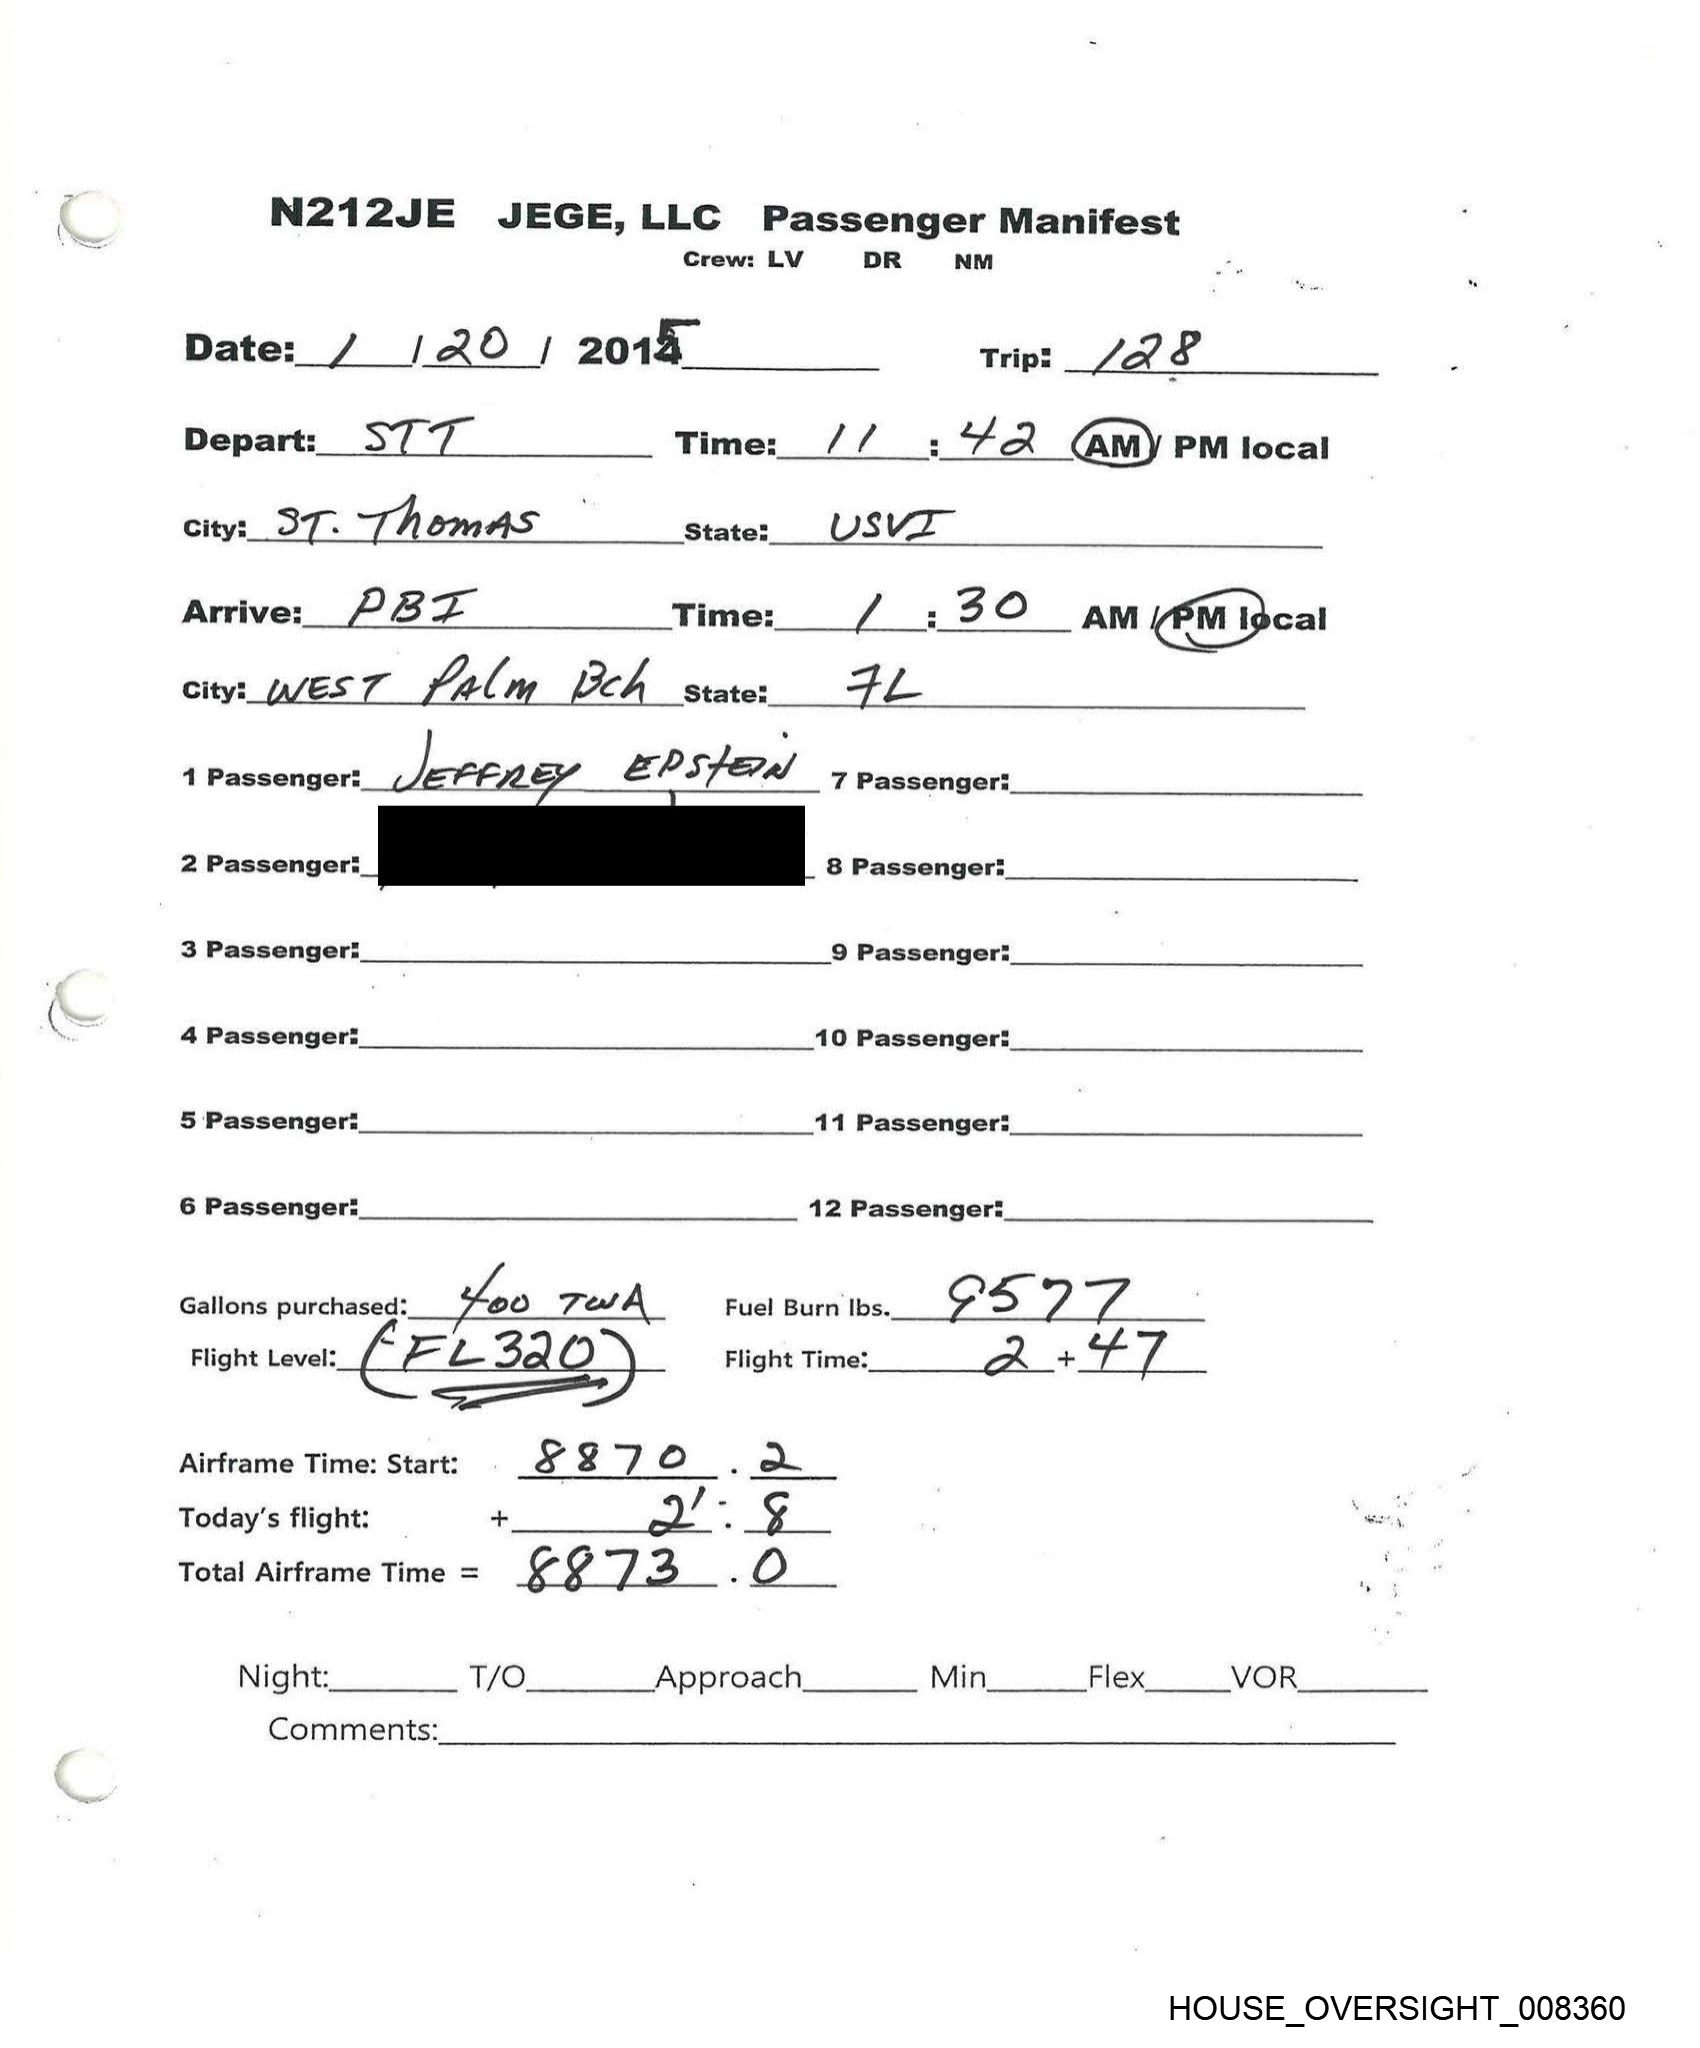 N212JE JEGE, LLC Passenger Manifest
Crew: LV DR NM
Date: 1 / 20 / 2015 Trip: 128
Depart: STT Time: 11 : 42 AM / PM local
City: ST. THOMAS State: USVI
Arrive: PBI Time: 1 : 30 AM / PM local
City: WEST PALM Bch State: FL
1 Passenger: JEFFREY EPSTEIN 7 Passenger:
2 Passenger: 8 Passenger:
3 Passenger: 9 Passenger:
4 Passenger: 10 Passenger:
5 Passenger: 11 Passenger:
6 Passenger: 12 Passenger:
Gallons purchased: 400 TWA Fuel Burn lbs. 9577
Flight Level: (FL320) Flight Time: 2 + 47
Airframe Time: Start: 8870 . 2
Today's flight: + 2 : 8
Total Airframe Time = 8873 . 0
Night: T/O Approach Min Flex VOR
Comments:
HOUSE_OVERSIGHT_008360